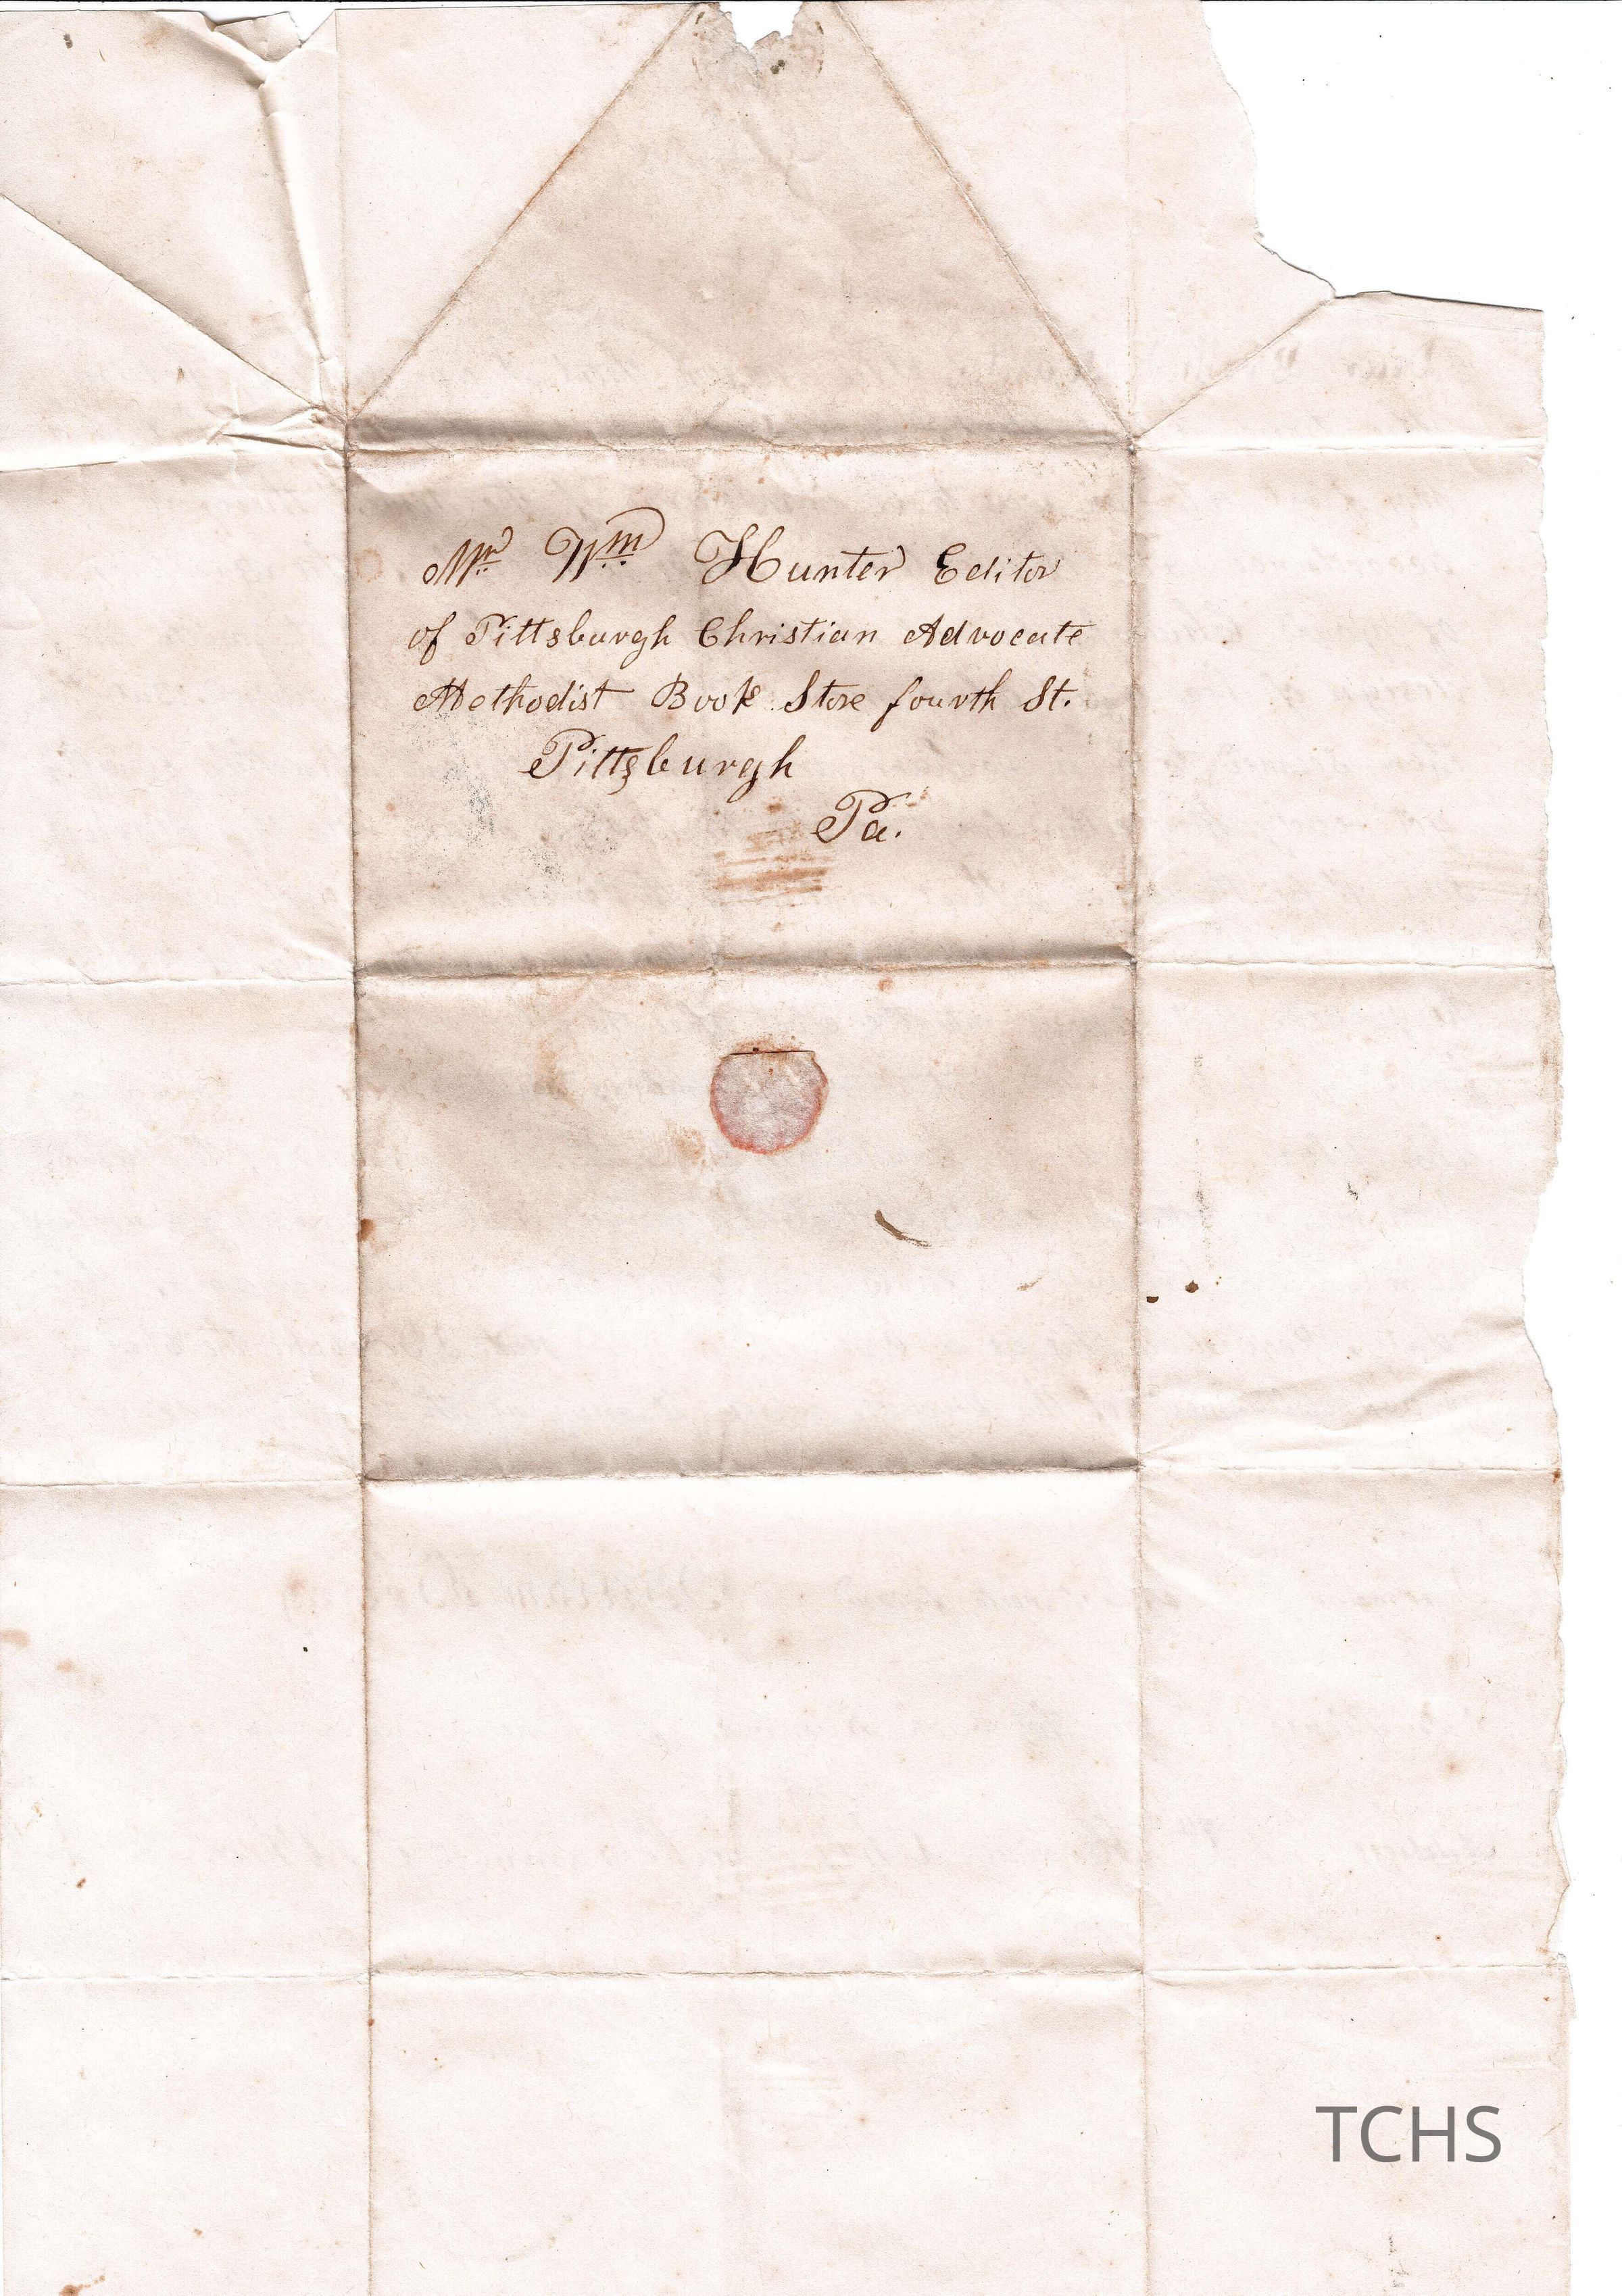 Mr. Wm. Hunter Editor
of Pittsburgh Christian Advocate
Methodist Book Store fourth St.
Pittsburgh
Pa.
TCHS